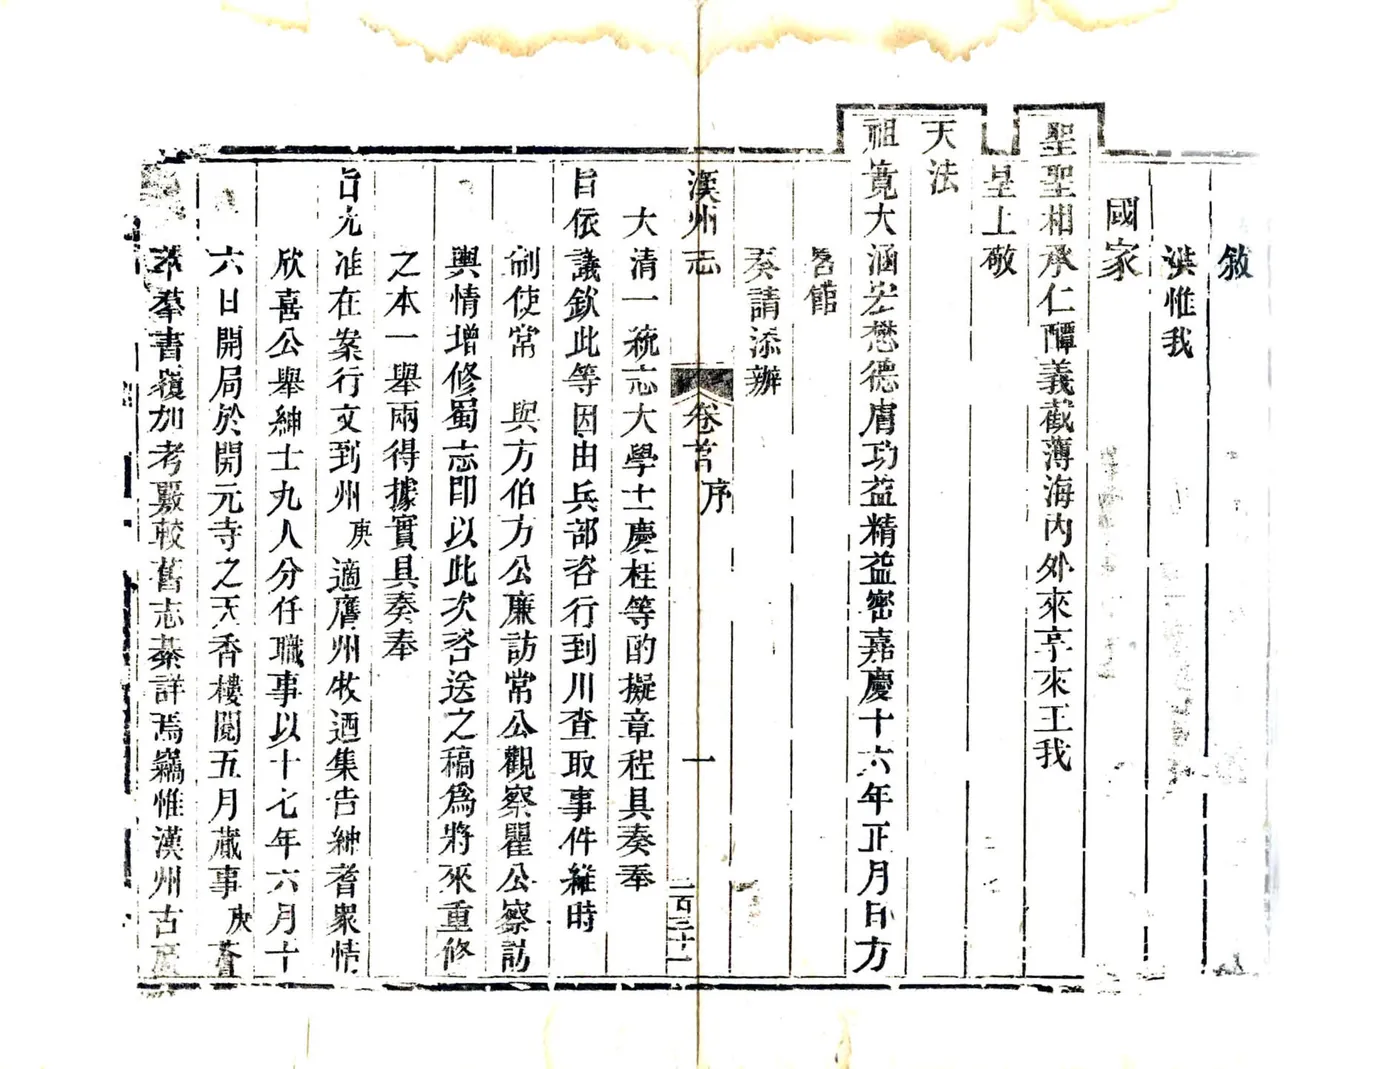 敘
洪惟我
國家
聖聖相承仁醰義截薄海內外來享來王我
皇上敬
天法
祖寬大涵宏懋德膚功益精益密嘉慶十六年正月日方
畧館
奏請添辦
漢州志 卷首 序 一 二百三十一
大清一統志大學士慶桂等酌擬章程具奏奉
旨依議欽此等因由兵部咨行到川查取事件維時
制使常 與方伯方公廉訪常公觀察瞿公察訪
輿情增修蜀志即以此次咨送之稿為將來重修
之本一舉兩得據實具奏奉
旨允准在案行文到州庚適膺州牧迺集告紳耆眾情
欣喜公舉紳士九人分任職事以十七年六月十
六日開局於開元寺之天香樓閱五月蕆事庚薈
萃羣書嶺加考覈較舊志綦詳焉竊惟漢州古廣